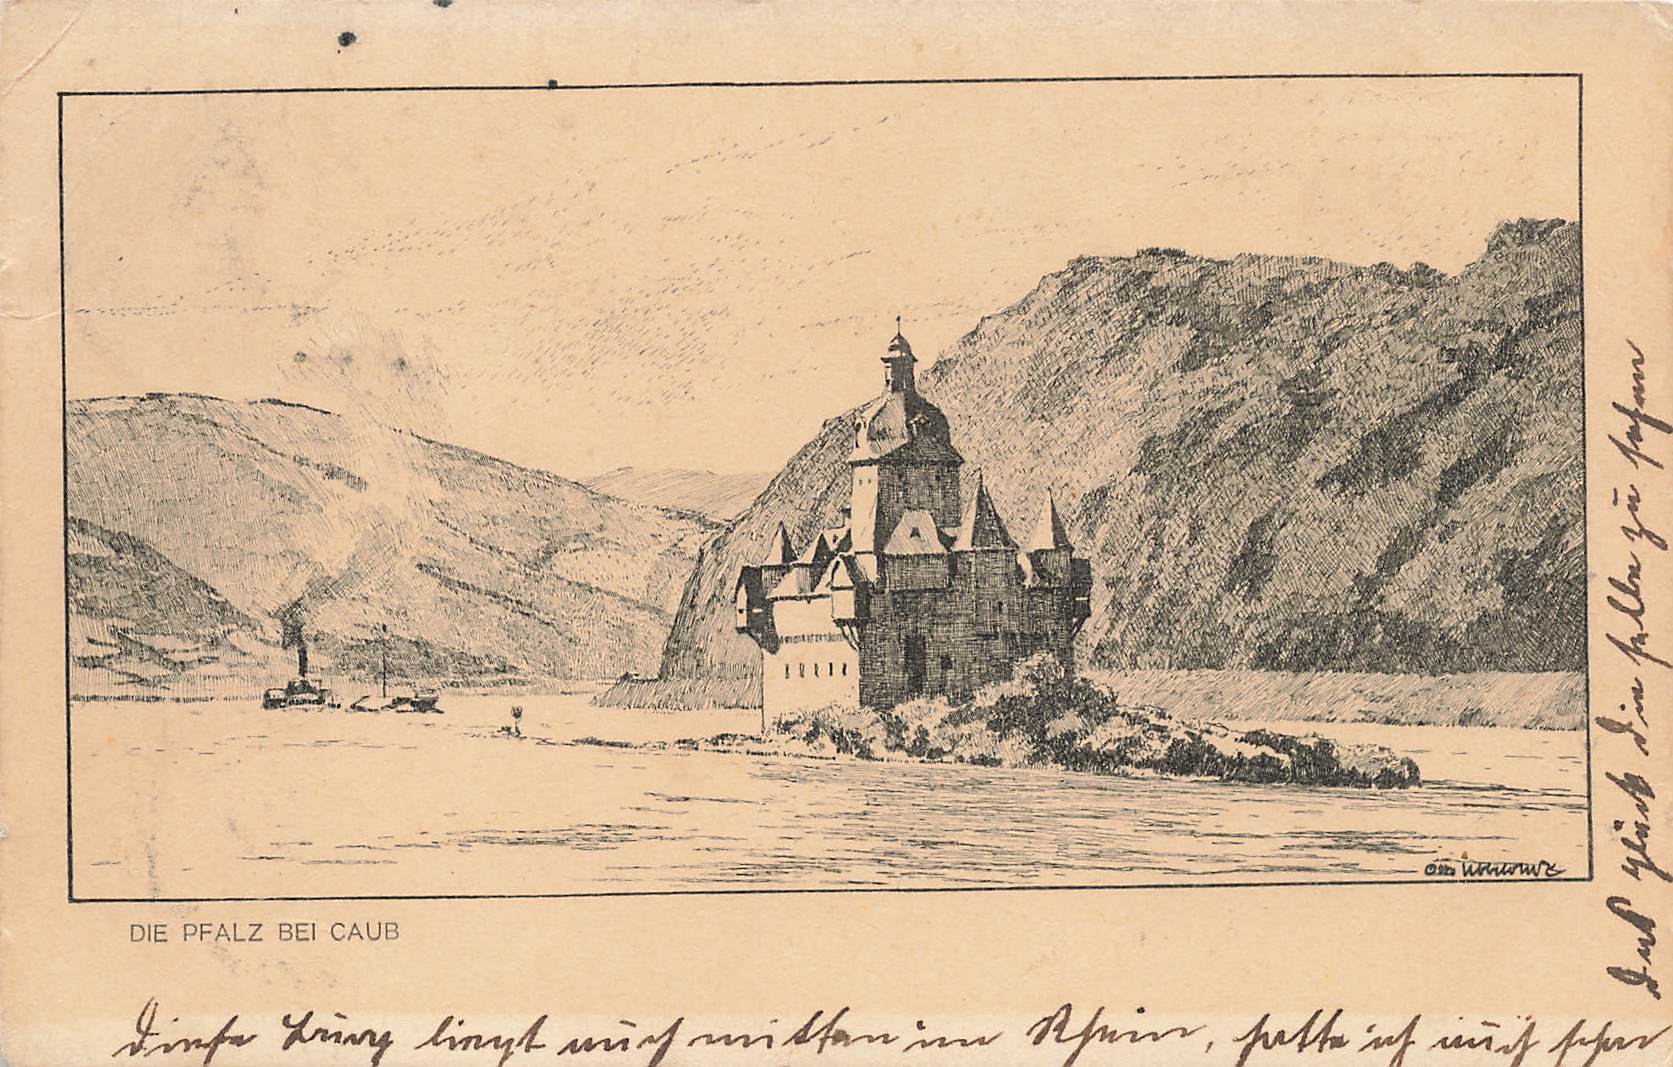 DIE PFALZ BEI CAUB
Diese Burg liegt auch mitten im Rhein, hatte ich auch schon
das Glück dieselbe zu sehen